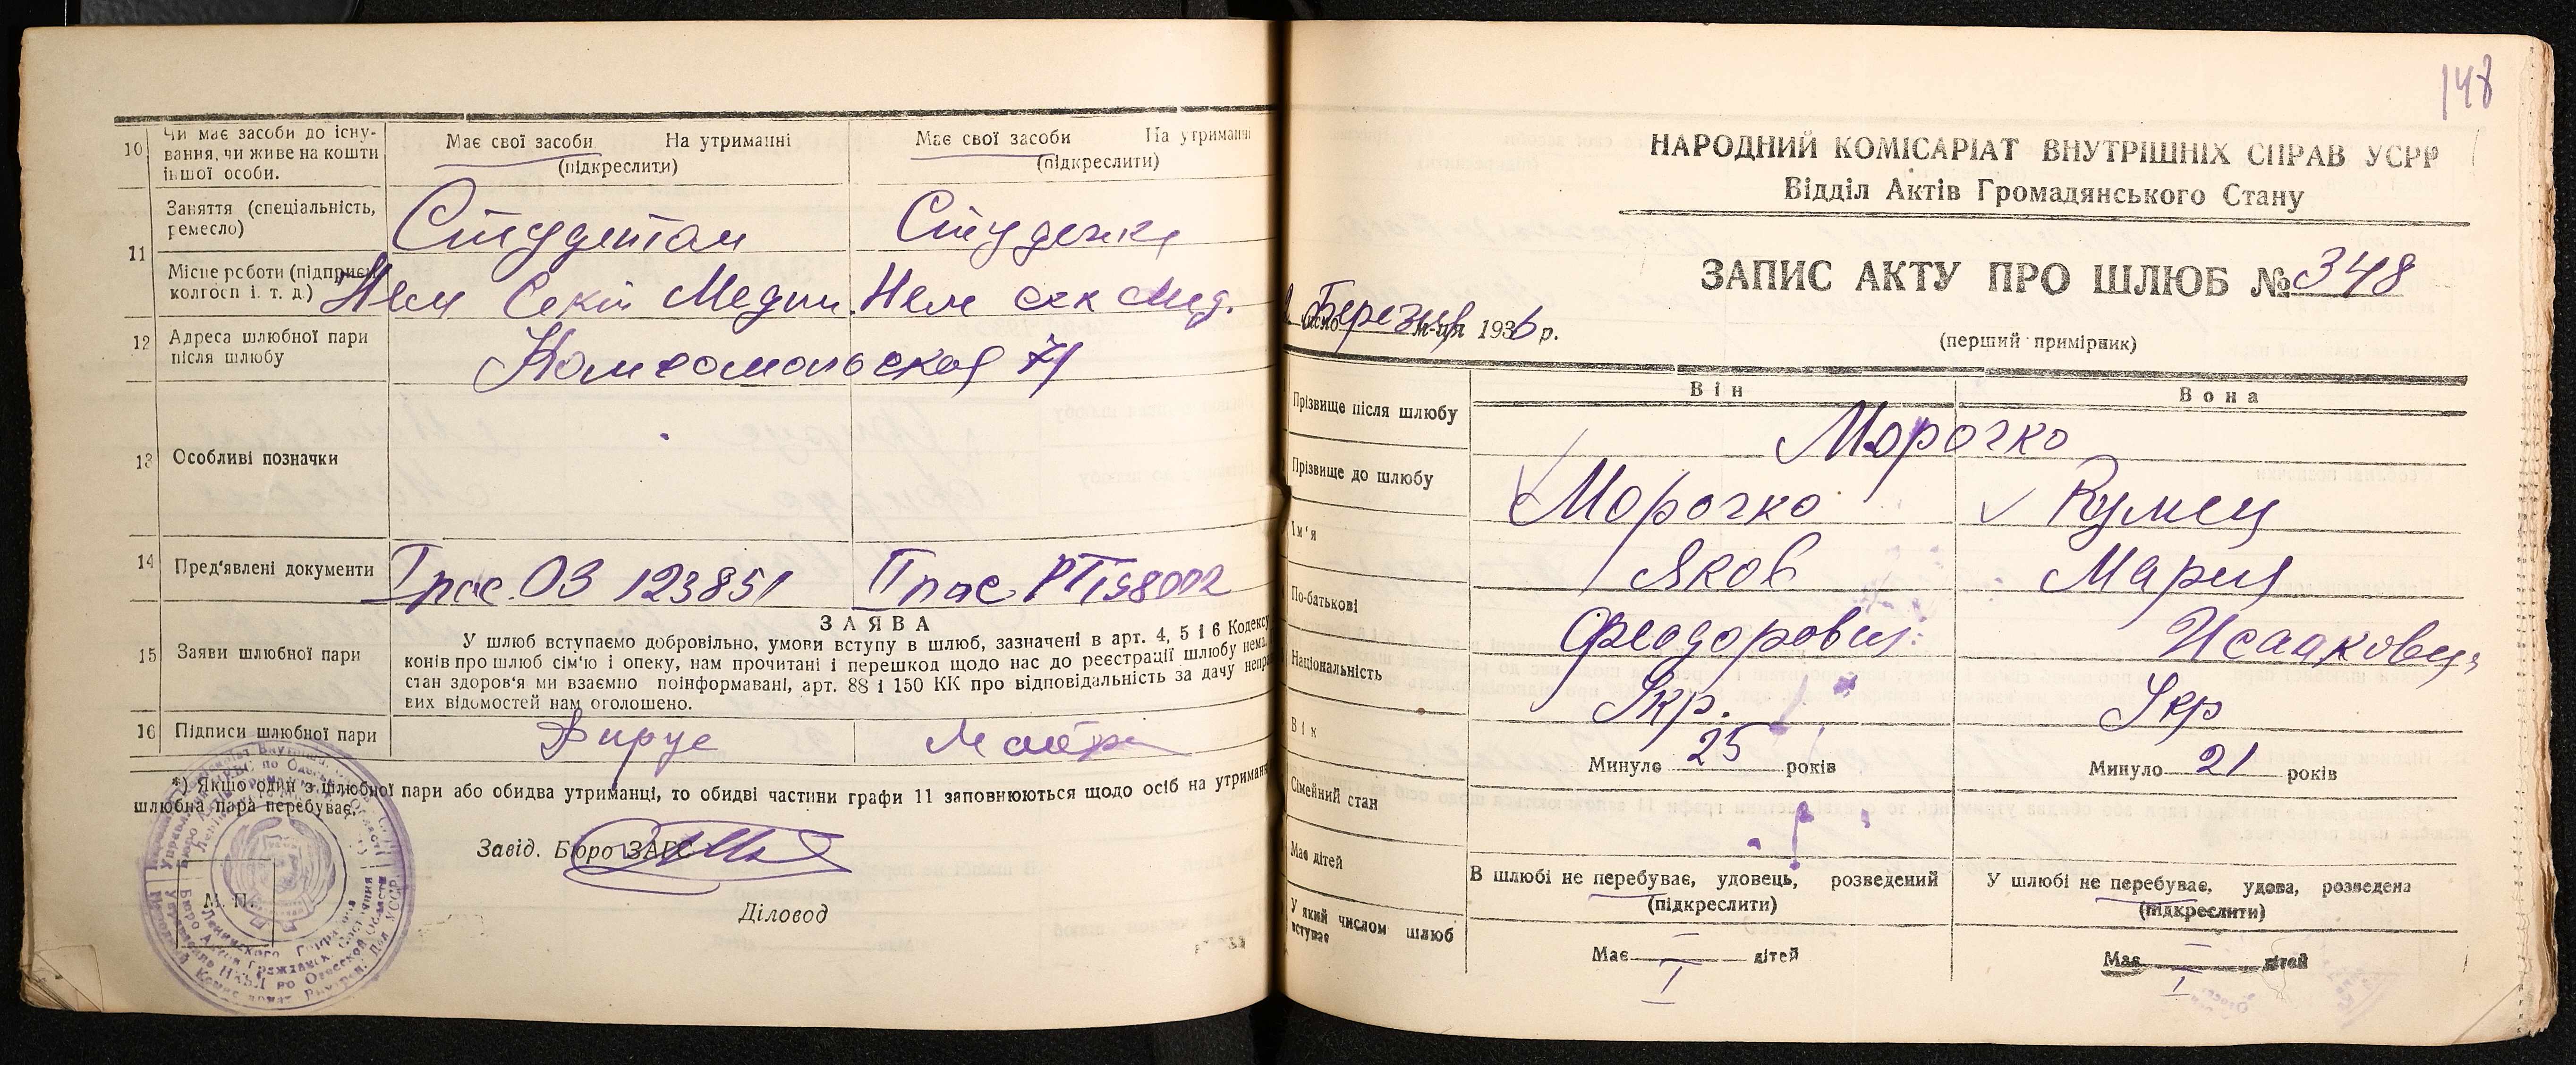 10
Чи має засоби до існу-
вання, чи живе на кошти
іншої особи.
Має свої засоби На утриманні
(підкреслити)
Має свої засоби На утриманні
(підкреслити)
11
Заняття (спеціальність,
ремесло)
Студентом
Студентка
Місце роботи (підприєм
колгосп і. т. д.)
Нем Секц Медин.
Нем сек Мед.
12
Адреса шлюбної пари
після шлюбу
Комсомольская 71
13
Особливі позначки
14
Пред'явлені документи
I пас. ОЗ 123851
II пас РТ 158002
15
Заяви шлюбної пари
ЗАЯВА
У шлюб вступаємо добровільно, умови вступу в шлюб, зазначені в арт. 4, 5 і 6 Кодексу
конів про шлюб сім'ю і опеку, нам прочитані і перешкод щодо нас до реєстрації шлюбу нема.
стан здоров'я ми взаємно поінформавані, арт. 88 і 150 КК про відповідальність за дачу непра
вих відомостей нам оголошено.
16
Підписи шлюбної пари
*) Якщо один з шлюбної пари або обидва утриманці, то обидві частини графи 11 заповнюються щодо осіб на утриманні
шлюбна пара перебуває.
Завід. Бюро ЗАГС
М. П.
Діловод
148
НАРОДНИЙ КОМІСАРІАТ ВНУТРІШНІХ СПРАВ УСРР
Відділ Актів Громадянського Стану
ЗАПИС АКТУ ПРО ШЛЮБ № 348
число Березня м-ця 1936 р.
(перший примірник)
Він
Вона
Прізвище після шлюбу
Морочко
Прізвище до шлюбу
Морочко
Кумец
Ім'я
Яков
Мария
По-батькові
Феодорович
Исааковна
Національність
Укр.
Укр
Вік
Минуло 25 років
Минуло 21 років
Сімейний стан
В шлюбі не перебуває, удовець, розведений
(підкреслити)
У шлюбі не перебуває, удова, розведена
(підкреслити)
Має дітей
Має — дітей
Має — дітей
У який числом шлюб
вступає
I
I